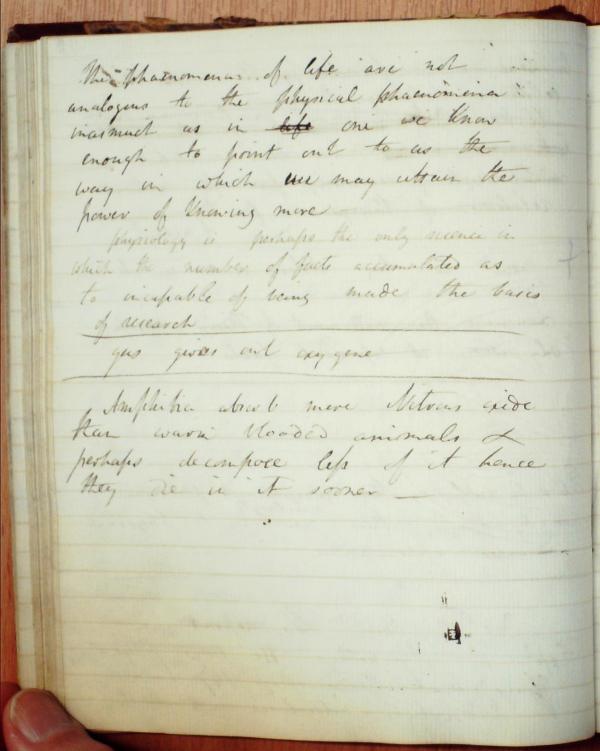 The phænomena of life are not
analogus to the physical phænomena
inasmuch as in life one we know
enough to point out to us the
way in which we may attain the
power of knowing more
physiology is perhaps the only science in
which the number of facts accumulated as
to incapable of being made the basis
of research
gus gives out oxygene
Amphibia absorb more Nitrous oxide
than warm blooded animals &
perhaps decompose less of it hence
they die in it sooner —